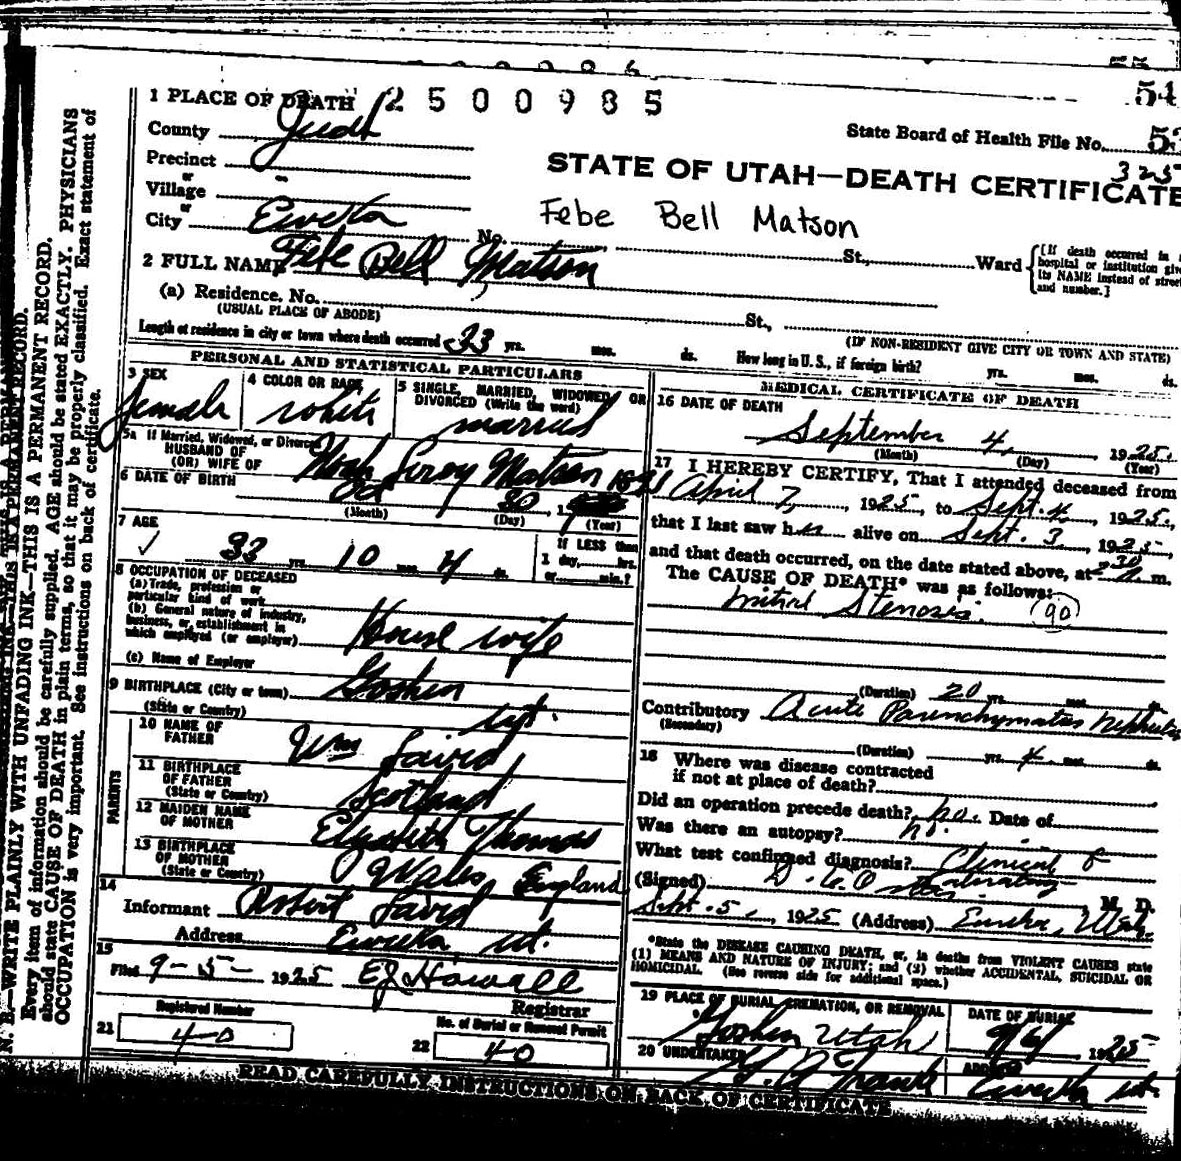 54
1 PLACE OF DEATH 2500985
County Juab
State Board of Health File No.
325
Precinct
or
Village -
or
City Eureka
STATE OF UTAH—DEATH CERTIFICATE
Febe Bell Matson
No. St., Ward
[If death occurred in a
hospital or institution give
its NAME instead of street
and number.]
2 FULL NAME Febe Bell Matson
(a) Residence. No. St.,
(USUAL PLACE OF ABODE)
(IF NON-RESIDENT GIVE CITY OR TOWN AND STATE)
Length of residence in city or town where death occurred 33 yrs. mos. ds. How long in U. S., if foreign birth? yrs. mos. ds.
PERSONAL AND STATISTICAL PARTICULARS
3 SEX
female
4 COLOR OR RACE
white
5 SINGLE, MARRIED, WIDOWED OR
DIVORCED (Write the word)
married
5a If Married, Widowed, or Divorced
HUSBAND OF
(OR) WIFE OF Noah Leroy Matson
6 DATE OF BIRTH Oct 30 1891
(Month) (Day) (Year)
7 AGE
33 yrs. 10 mos. 4 ds.
If LESS than
1 day, hrs.
or min.?
8 OCCUPATION OF DECEASED
(a) Trade, profession or
particular kind of work
(b) General nature of industry,
business, or establishment in
which employed (or employer)
House wife
(c) Name of Employer
9 BIRTHPLACE (City or town) Goshen
(State or Country) Ut.
PARENTS
10 NAME OF
FATHER Wm Laird
11 BIRTHPLACE
OF FATHER
(State or Country) Scotland
12 MAIDEN NAME
OF MOTHER Elizabeth Thomas
13 BIRTHPLACE
OF MOTHER
(State or Country) Wales, England
14
Informant Robert Laird
Address Eureka Ut.
15
Filed 9-5- 1925 EJ Howell
Registrar
Registered Number
21 40
No. of Burial or Removal Permit
22 40
MEDICAL CERTIFICATE OF DEATH
16 DATE OF DEATH
September 4, 1925.
(Month) (Day) (Year)
17 I HEREBY CERTIFY, That I attended deceased from
April 7, 1925, to Sept. 4, 1925,
that I last saw her alive on Sept. 3, 1925,
and that death occurred, on the date stated above, at 2 30 m.
The CAUSE OF DEATH* was as follows:
Mitral Stenosis. (90)
(Duration) 20 yrs. mos. ds.
Contributory Acute Parenchymatus Nephritis
(Secondary)
(Duration) yrs. 4 mos. ds.
18 Where was disease contracted
if not at place of death?
Did an operation precede death? no. Date of
Was there an autopsy? no.
What test confirmed diagnosis? Clinical &
(Signed) M. D.
Sept. 5, 1925 (Address) Eureka, Utah.
*State the DISEASE CAUSING DEATH, or, in deaths from VIOLENT CAUSES, state
(1) MEANS AND NATURE OF INJURY; and (2) whether ACCIDENTAL, SUICIDAL OR
HOMICIDAL. (See reverse side for additional space.)
19 PLACE OF BURIAL, CREMATION, OR REMOVAL
Goshen Utah
DATE OF BURIAL
9/6/ 1925
20 UNDERTAKER
ADDRESS
Eureka Ut.
READ CAREFULLY INSTRUCTIONS ON BACK OF CERTIFICATE
N. B.—WRITE PLAINLY WITH UNFADING INK—THIS IS A PERMANENT RECORD.
Every item of information should be carefully supplied. AGE should be stated EXACTLY. PHYSICIANS
should state CAUSE OF DEATH in plain terms, so that it may be properly classified. Exact statement of
OCCUPATION is very important. See instructions on back of certificate.